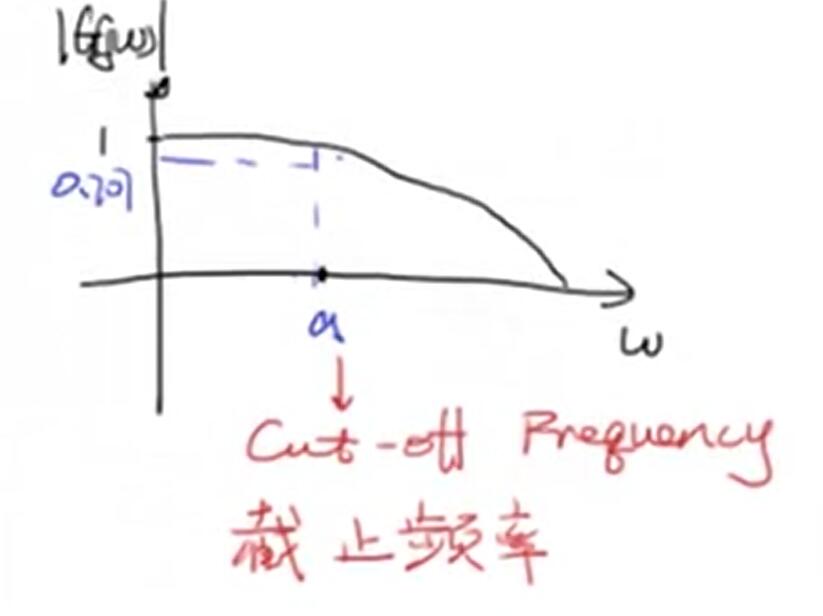 |G(jω)|
1
0.707
a
ω
Cut-off Frequency
截止频率